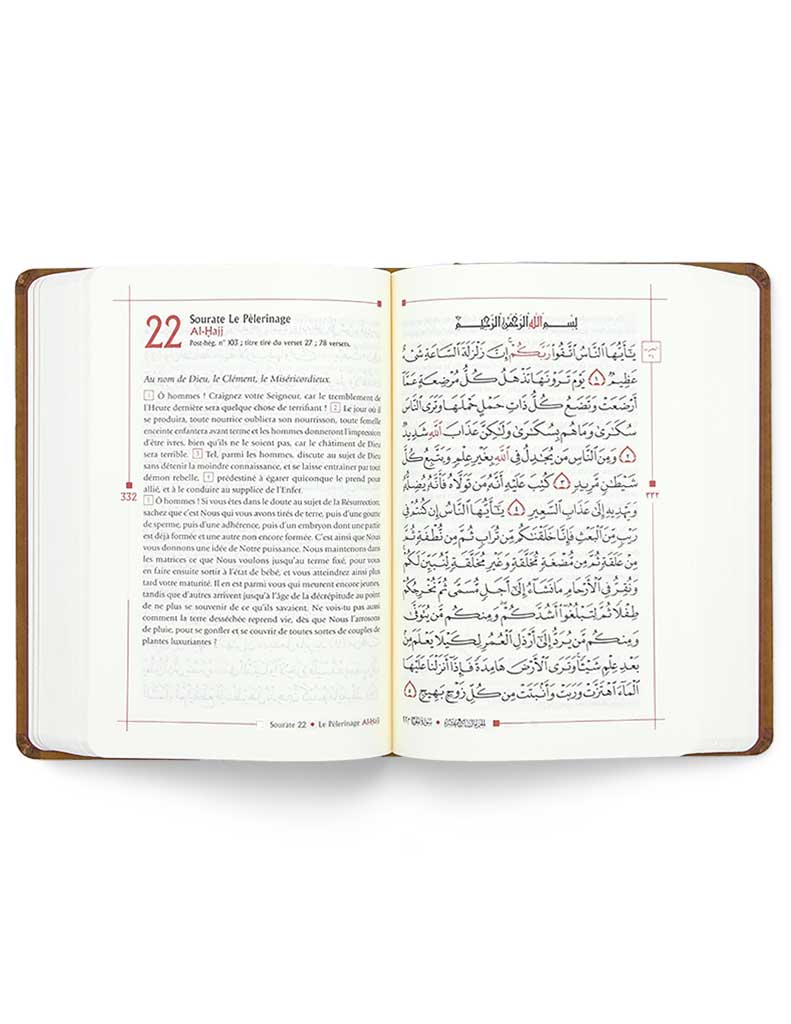 22
Sourate Le Pèlerinage
Al-Ḥajj
Post-hég. n° 103 ; titre tiré du verset 27 ; 78 versets.
Au nom de Dieu, le Clément, le Miséricordieux.
1 Ô hommes ! Craignez votre Seigneur, car le tremblement de
l'Heure dernière sera quelque chose de terrifiant ! 2 Le jour où il
se produira, toute nourrice oubliera son nourrisson, toute femelle
enceinte enfantera avant terme et les hommes donneront l'impression
d'être ivres, bien qu'ils ne le soient pas, car le châtiment de Dieu
sera terrible. 3 Tel, parmi les hommes, discute au sujet de Dieu
sans détenir la moindre connaissance, et se laisse entraîner par tout
démon rebelle, 4 prédestiné à égarer quiconque le prend pour
allié, et à le conduire au supplice de l'Enfer.
5 Ô hommes ! Si vous êtes dans le doute au sujet de la Résurrection,
sachez que c'est Nous qui vous avons tirés de terre, puis d'une goutte
de sperme, puis d'une adhérence, puis d'un embryon dont une partie
est déjà formée et une autre non encore formée. C'est ainsi que Nous
vous donnons une idée de Notre puissance. Nous maintenons dans
les matrices ce que Nous voulons jusqu'au terme fixé, pour vous
en faire ensuite sortir à l'état de bébé, et vous atteindrez ainsi plus
tard votre maturité. Il en est parmi vous qui meurent encore jeunes,
tandis que d'autres arrivent jusqu'à l'âge de la décrépitude au point
de ne plus se souvenir de ce qu'ils savaient. Ne vois-tu pas aussi
comment la terre desséchée reprend vie, dès que Nous l'arrosons
de pluie, pour se gonfler et se couvrir de toutes sortes de couples de
plantes luxuriantes ?
332
Sourate 22 ◆ Le Pèlerinage Al-Ḥajj
بِسْمِ اللَّهِ الرَّحْمَٰنِ الرَّحِيمِ
يَٰٓأَيُّهَا ٱلنَّاسُ ٱتَّقُوا۟ رَبَّكُمْ ۚ إِنَّ زَلْزَلَةَ ٱلسَّاعَةِ شَىْءٌ
عَظِيمٌ ١ يَوْمَ تَرَوْنَهَا تَذْهَلُ كُلُّ مُرْضِعَةٍ عَمَّآ
أَرْضَعَتْ وَتَضَعُ كُلُّ ذَاتِ حَمْلٍ حَمْلَهَا وَتَرَى ٱلنَّاسَ
سُكَٰرَىٰ وَمَا هُم بِسُكَٰرَىٰ وَلَٰكِنَّ عَذَابَ ٱللَّهِ شَدِيدٌ
٢ وَمِنَ ٱلنَّاسِ مَن يُجَٰدِلُ فِى ٱللَّهِ بِغَيْرِ عِلْمٍ وَيَتَّبِعُ كُلَّ
شَيْطَٰنٍ مَّرِيدٍ ٣ كُتِبَ عَلَيْهِ أَنَّهُۥ مَن تَوَلَّاهُ فَأَنَّهُۥ يُضِلُّهُۥ
وَيَهْدِيهِ إِلَىٰ عَذَابِ ٱلسَّعِيرِ ٤ يَٰٓأَيُّهَا ٱلنَّاسُ إِن كُنتُمْ فِى
رَيْبٍ مِّنَ ٱلْبَعْثِ فَإِنَّا خَلَقْنَٰكُم مِّن تُرَابٍ ثُمَّ مِن نُّطْفَةٍ ثُمَّ
مِنْ عَلَقَةٍ ثُمَّ مِن مُّضْغَةٍ مُّخَلَّقَةٍ وَغَيْرِ مُخَلَّقَةٍ لِّنُبَيِّنَ لَكُمْ ۚ
وَنُقِرُّ فِى ٱلْأَرْحَامِ مَا نَشَآءُ إِلَىٰٓ أَجَلٍ مُّسَمًّى ثُمَّ نُخْرِجُكُمْ
طِفْلًا ثُمَّ لِتَبْلُغُوٓا۟ أَشُدَّكُمْ ۖ وَمِنكُم مَّن يُتَوَفَّىٰ
وَمِنكُم مَّن يُرَدُّ إِلَىٰٓ أَرْذَلِ ٱلْعُمُرِ لِكَيْلَا يَعْلَمَ مِنۢ
بَعْدِ عِلْمٍ شَيْـًٔا ۚ وَتَرَى ٱلْأَرْضَ هَامِدَةً فَإِذَآ أَنزَلْنَا عَلَيْهَا
ٱلْمَآءَ ٱهْتَزَّتْ وَرَبَتْ وَأَنۢبَتَتْ مِن كُلِّ زَوْجٍۭ بَهِيجٍ ٥
٣٣٢